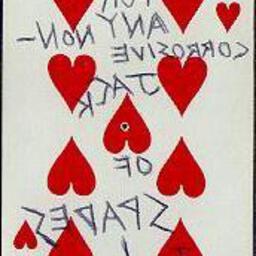 ANY NON-
CORROSIVE
JACK
OF
SPADES